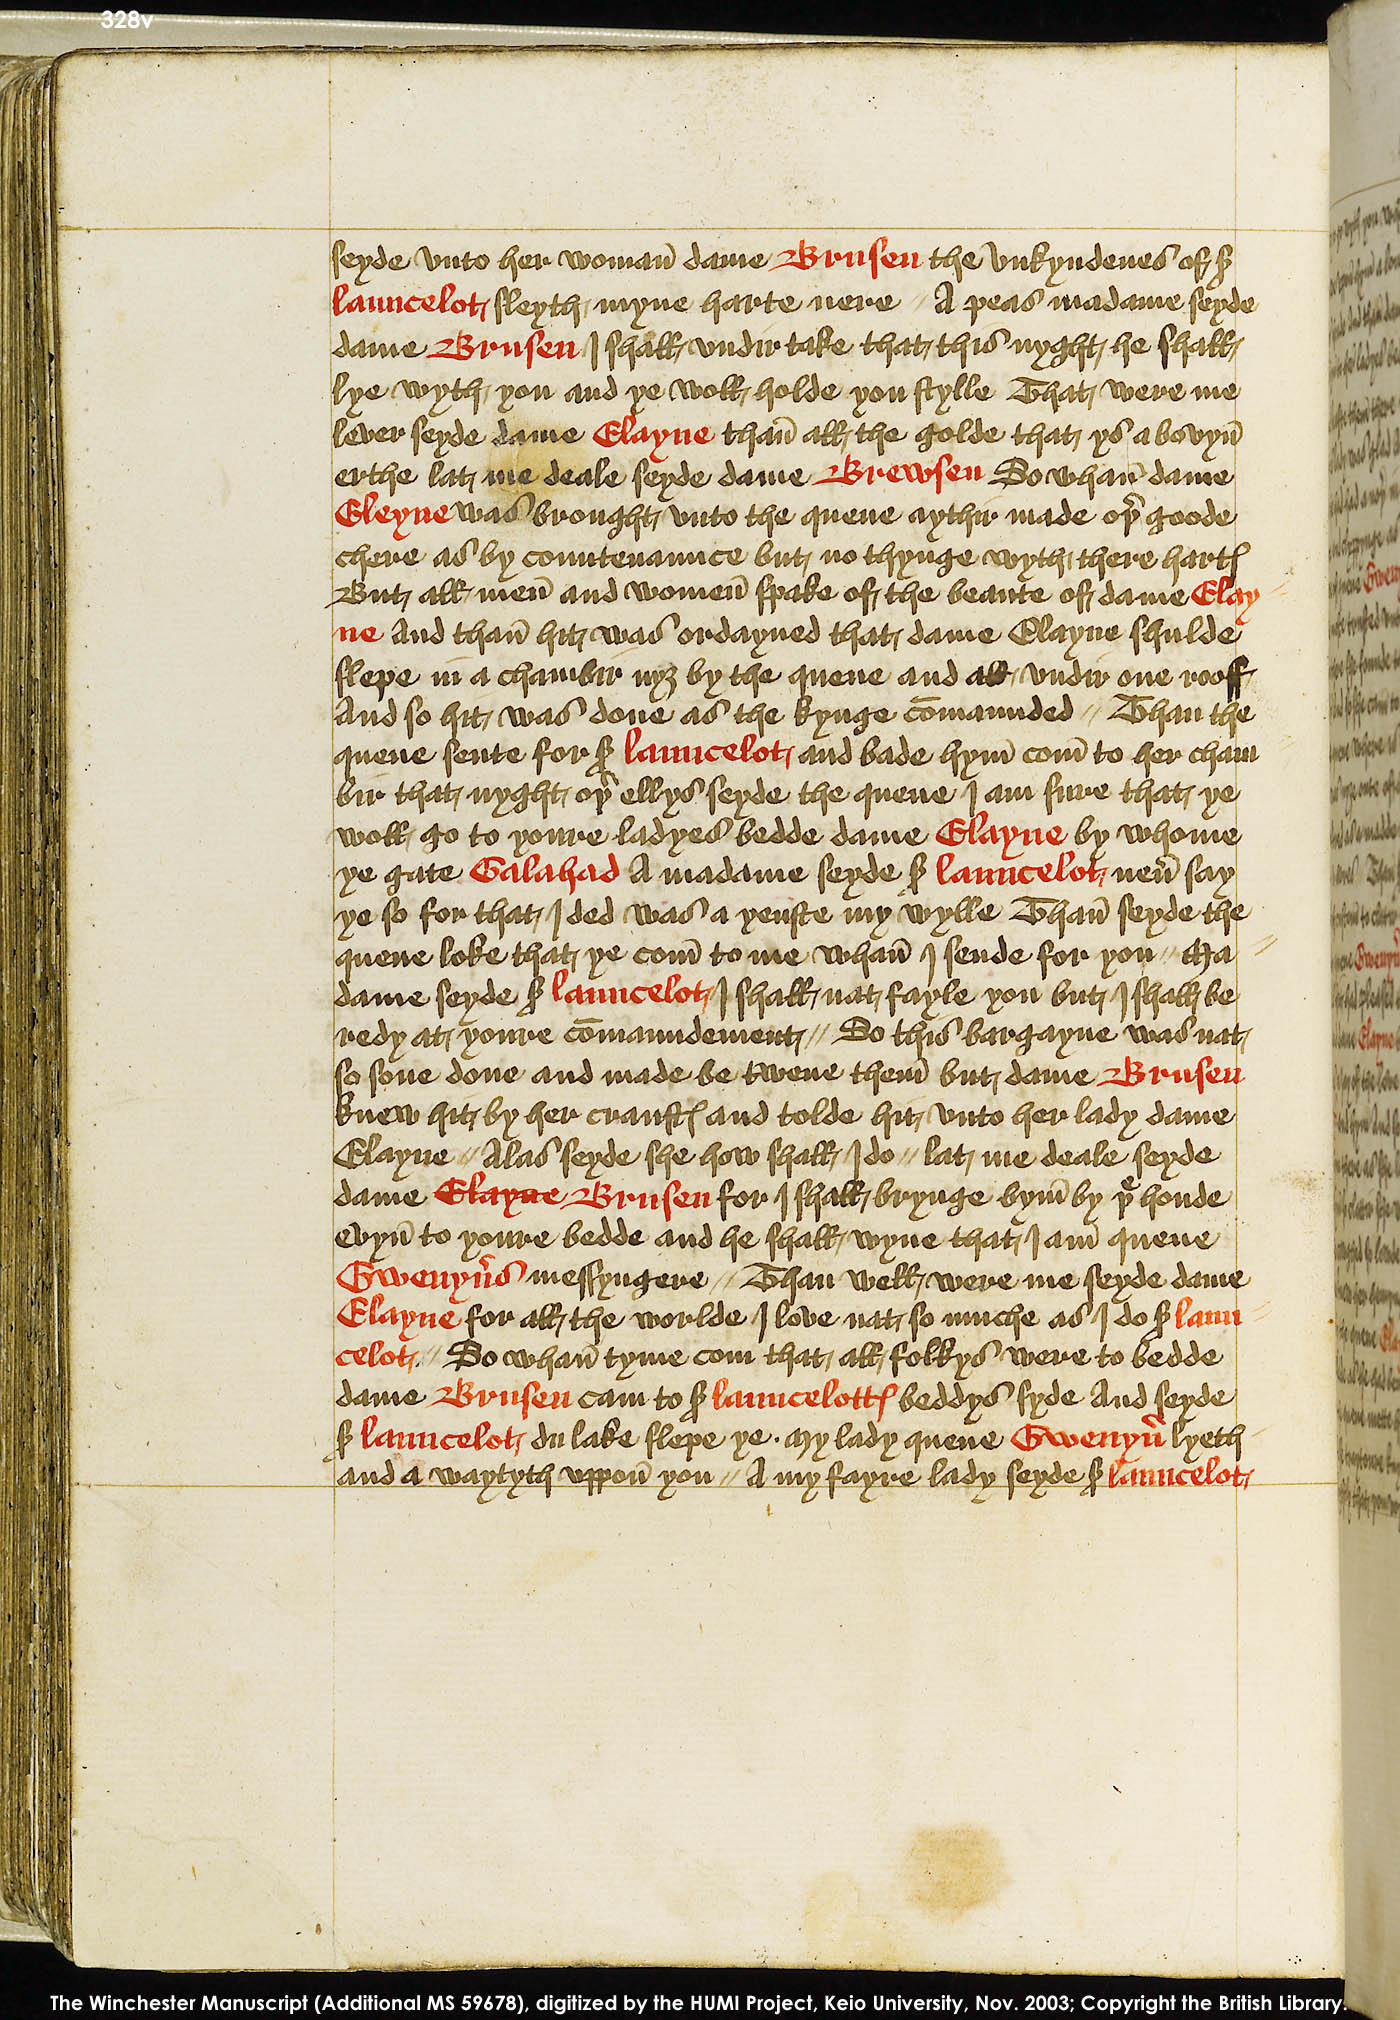 328v
seyde vnto her woman̄ dame Brusen the vnkyndenes of sꝭ
launcelot sleyth myne harte nere // A peas madame seyde
dame Brusen I shall vndir take that this nyght he shall
lye wyth you and ye woll holde you stylle That were me
lever seyde dame Elayne than̄ all the golde that ys a bovyn̄
erthe lat me deale seyde dame Brewsen So whan̄ dame
Eleyne was brought vnto the quene aythir made oþʳ goode
chere as by countenaunce but no thynge wyth there hartꝭ
But all men̄ and women̄ spake of the beaute of dame Elay
ne And than̄ hit was ordayned that dame Elayne shulde
slepe in a chambir nyȝ by the quene and all vndir one rooff
And so hit was done as the kynge cōmaunded // Than the
quene sente for sꝭ launcelot and bade hym̄ com̄ to her cham
bir that nyght oþʳ ellys seyde the quene I am sure that ye
woll go to youre ladyes bedde dame Elayne by whome
ye gate Galahad A madame seyde sꝭ launcelot neṽ say
ye so for that I ded was a yenste my wylle Than̄ seyde the
quene loke that ye com̄ to me whan̄ I sende for you // Ma
dame seyde sꝭ launcelot I shall nat fayle you but I shall be
redy at youre cōmaundement // So this bargayne was nat
so sone done and made be twene them̄ but dame Brusen
knew hit by her crauftꝭ and tolde hit vnto her lady dame
Elayne // Alas seyde she how shall I do // lat me deale seyde
dame Elayne Brusen for I shall brynge hym̄ by þᵉ honde
evyn̄ to youre bedde and he shall wyne that I am̄ quene
Gwenyv̄s messyngere // Than well were me seyde dame
Elayne for all the worlde I love nat so muche as I do sꝭ laun
celot // So whan̄ tyme com that all folkys were to bedde
dame Brusen cam to sꝭ launcelottꝭ beddys syde And seyde
sꝭ launcelot du lake slepe ye . My lady quene Gwenyv̄ lyeth
and a waytyth vppon̄ you // A my fayre lady seyde sꝭ launcelot
The Winchester Manuscript (Additional MS 59678), digitized by the HUMI Project, Keio University, Nov. 2003; Copyright the British Library.